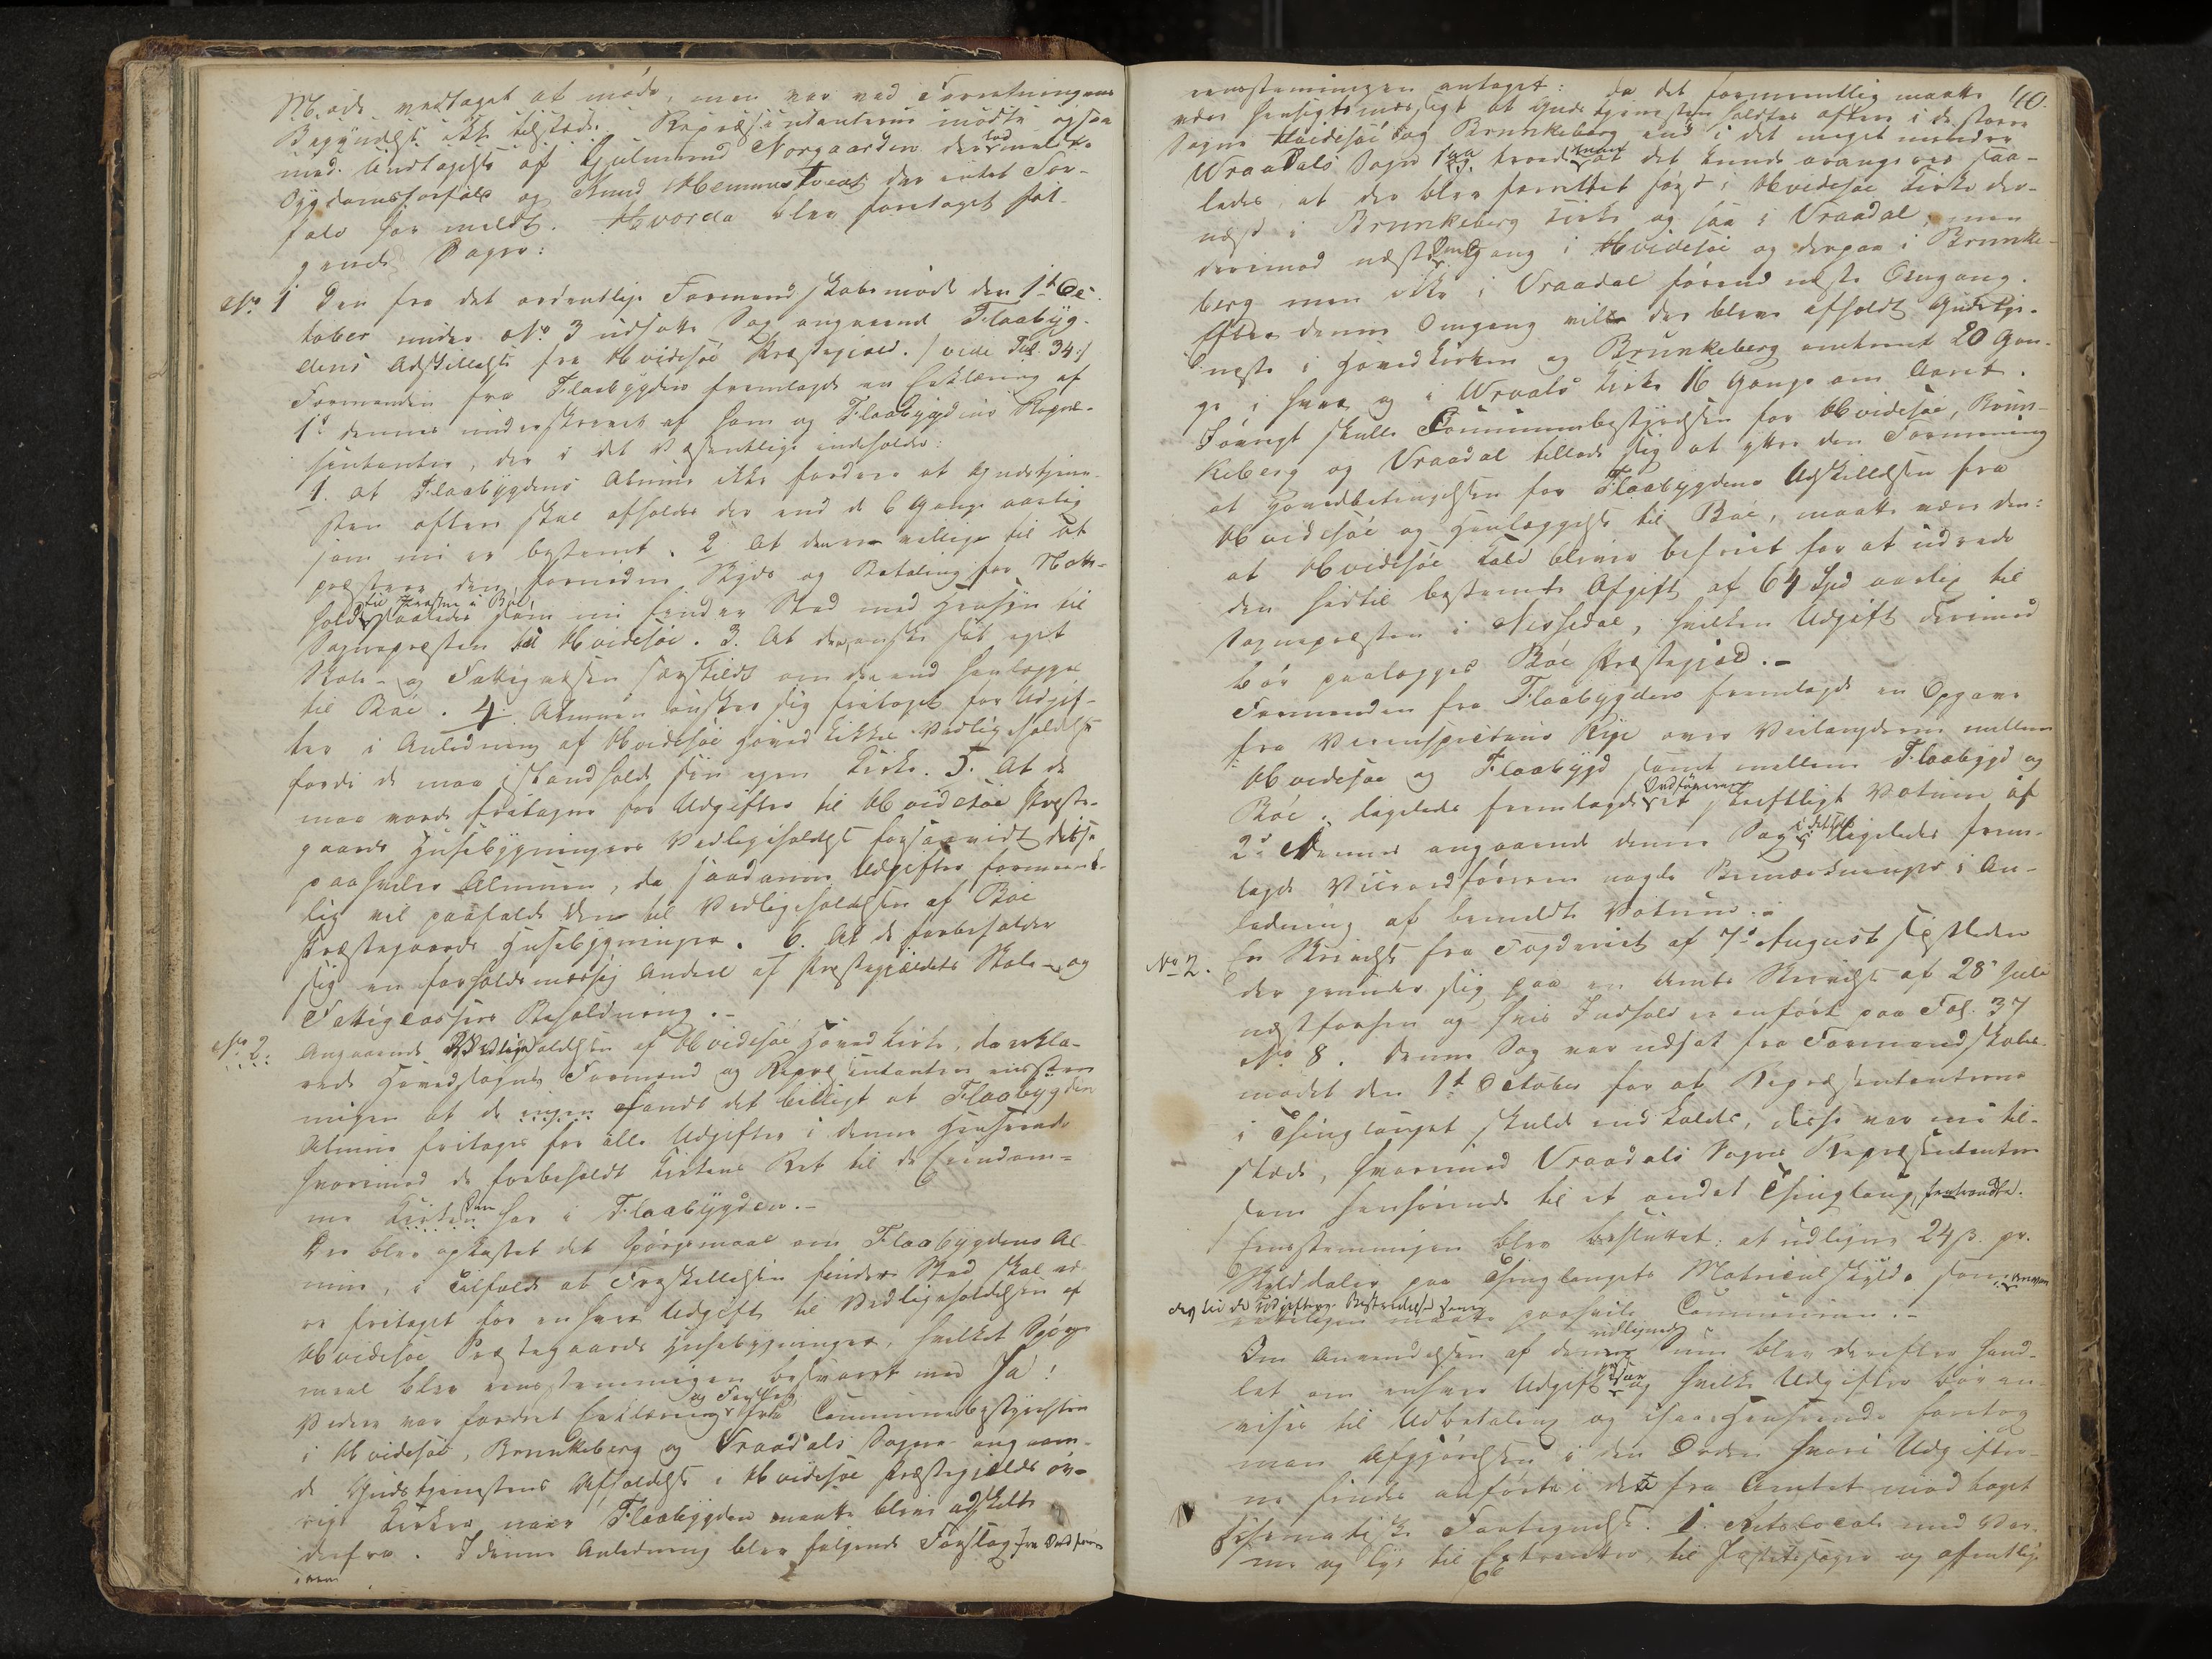 Møde modtaget at møde, men var ved Forretningens
Begyndelse ikke tilstede. Repræsentanterne mødte ogsaa
med Undtagelse af Hjulmund Norgaarden der lod melde
Sygdomsforfald og Knud Hemmestveit der intet For-
fald har meldt. Hvorda blev foretaget føl-
gende Sager:
No 1 Den fra det ordentlige Formandskabsmøde den 1st Oc-
tober under No 3 udsatte Sag angaaende Flaabyg-
dens Adskillelse fra Hvidesøe Præstegjeld. /: vide Fol. 34 :/
Formanden fra Flaabygden fremlagde en Erklæring af
1st dennes underskrevet af ham og Flaabygdens Repræ-
sentanter, der i det Væsentlige indholder:
1. at Flaabygdens Almue ikke fordrer at Gudstjene-
sten oftere skal afholdes der end de 6 Gange aarlig
som nu er bestemt. 2 At den er villige til at
præstere den fornødne Skyds og Betaling for Natte-
hold til Præsten i Bøe, saaledes som nu finder Sted med Hensyn til
Sognepræsten til Hvidesøe. 3. At den ønsker sit eget
Skole- og Fattigvæsen særskildt om den end henlægges
til Bøe. 4. Almuen ønsker sig fritaget for Udgif-
ter i Anledning af Hvidesøe Hovedkirkes Vedligeholdelse
fordi de maa istandholde sin egen Kirke. 5. At de
maa vorde fritagne for Udgifter til Hvidesøe Præste-
gaards Husebygningers Vedligeholdelse forsaavidt disse
paahviler Almuen, da saadanne Udgifter forment-
lig vil paafalde dem til Vedligeholdelsen af Bøe
Præstegaards Husebygninger. 6. At de forbeholder
sig en forholdsmæssig Andeel af Præstegjeldets Skole- og
Fattigcassers Beholdning.-
No 2. Angaaende Vedligeholdelsen af Hvidesøe Hovedkirke, da erklæ-
rede Hovedsognets Formænd og Repræsentanter eenstem-
migen at de ingen fandt det billigt at Flaabygdens
Almue fritages for alle Udgifter i denne Henseende
hvorimod de forbeholdt Kirkens Ret til de Eiendom-
me Kirken har i Flaabygden.-
Der blev opkastet det Spørgsmaal om Flaabygdens Al-
mue, i Tilfælde at Fraskillelsen finder Sted skal væ-
re fritaget for enhver Udgift til Vedligeholdelsen af
Hvidesøe Præstegaards Husebygninger, hvilket Spørgs-
maal blev eenstemmigen besvaret med Ja!
Videre var fordret Erklæring og Forslag fra Communebestyrelsen
i Hvidesøe, Brunkeberg og Vraadals Sogne angaaen-
de Gudstjenestens Afholdelse i Hvidesøe Præstegjelds øv-
rige Kirker naar Flaabygden maatte blive adskilt
derfra. I denne Anledning blev følgende Forslag fra Ordføreren
40.
eenstemmigen antaget: da det formeentlig maatte
være hensigtsmæssigt at Gudstjenesten holdes oftere i de større
Sogne Hvidesøe og Brunkeberg end i det meget mindre
Wraadals Sogn saa troede man at det kunde arangeres saa-
ledes, at der blev forrettet først i Hvidesøe Kirke der-
næst i Brunkeberg Kirke og saa i Vraadal, men
derimod næste Omgang i Hvidesøe og derpaa i Brunke-
berg men ikke i Vraadal førend næste Omgang.
Efter denne Omgang ville der blive afholdt Gudstje-
neste i Hovedkirken og Brunkeberg omtrent 20 Gan-
ge i hver og i Wraals Kirke 16 Gange om Aaret.
Iøvrigt skulle Communebestyrelsen for Hvidesøe, Brun-
keberg og Vraadal tillade sig at yttre den Formening
at Hovedbetingelsen for Flaabygdens Udskillelsen fra
Hvidesøe og Henlæggelse til Bøe, maatte være den:
at Hvidesøe Kald bliver befriet for at udrede
den hidtil bestemte Afgift af 64 Spd aarlig til
Sognepræsten i Nissedal, hvilken Udgift derimod
bør paalægges Bøe Præstegjeld.-
Formanden fra Flaabygden fremlagde en Opgave
fra Veiinspecteur Rye over Veilængderne mellem
Hvidesøe og Flaabygd samt mellem Flaabygd og
Bøe. Ligeledes fremlagde Ordføreren et skriftligt Votum af
2d dennes angaaende denne Sag ligeledes frem-
lagde Viceordføreren nogle Bemærkninger i An-
ledning af bemeldte Votum.-
No 2. En Skrivelse fra Fogderiet af 7d August sidstleden
der grunder sig paa en Amts Skrivelse af 28d Juli
næstforhen og hvis Indhold er anført paa Fol. 37
No 8. Denne Sag var udsat fra Formandskabs-
mødet den 1st October for at Repræsentanterne
i Thinglauget skulde indkaldes, disse var nu til-
stæde, hvorimod Vraadals Sogns Repræsentanter
som henhørende til et andet Thinglaug, fratraadte.
Eenstemmigen blev besluttet: at udligne 24 ß. pr.
Skylddaler paa Thinglaugets Matriculskyld
deg til de Udgifters Bestridelse som paahvile Communen.-
Om Anvendelsen af denne udlignede Sum blev derefter hand-
let om enhver Udgift især og hvilke Udgifter bør an-
vises til Udbetaling og i saa Henseende foretog
man Afgjørelsen i den Orden hvori Udgifter-
ne findes anførte i det fra Amtet modtaget
schematiske Fortegnelse. 1. Retslocale med Var-
me og Lys til Extraretter, til Justitssager og offentlige